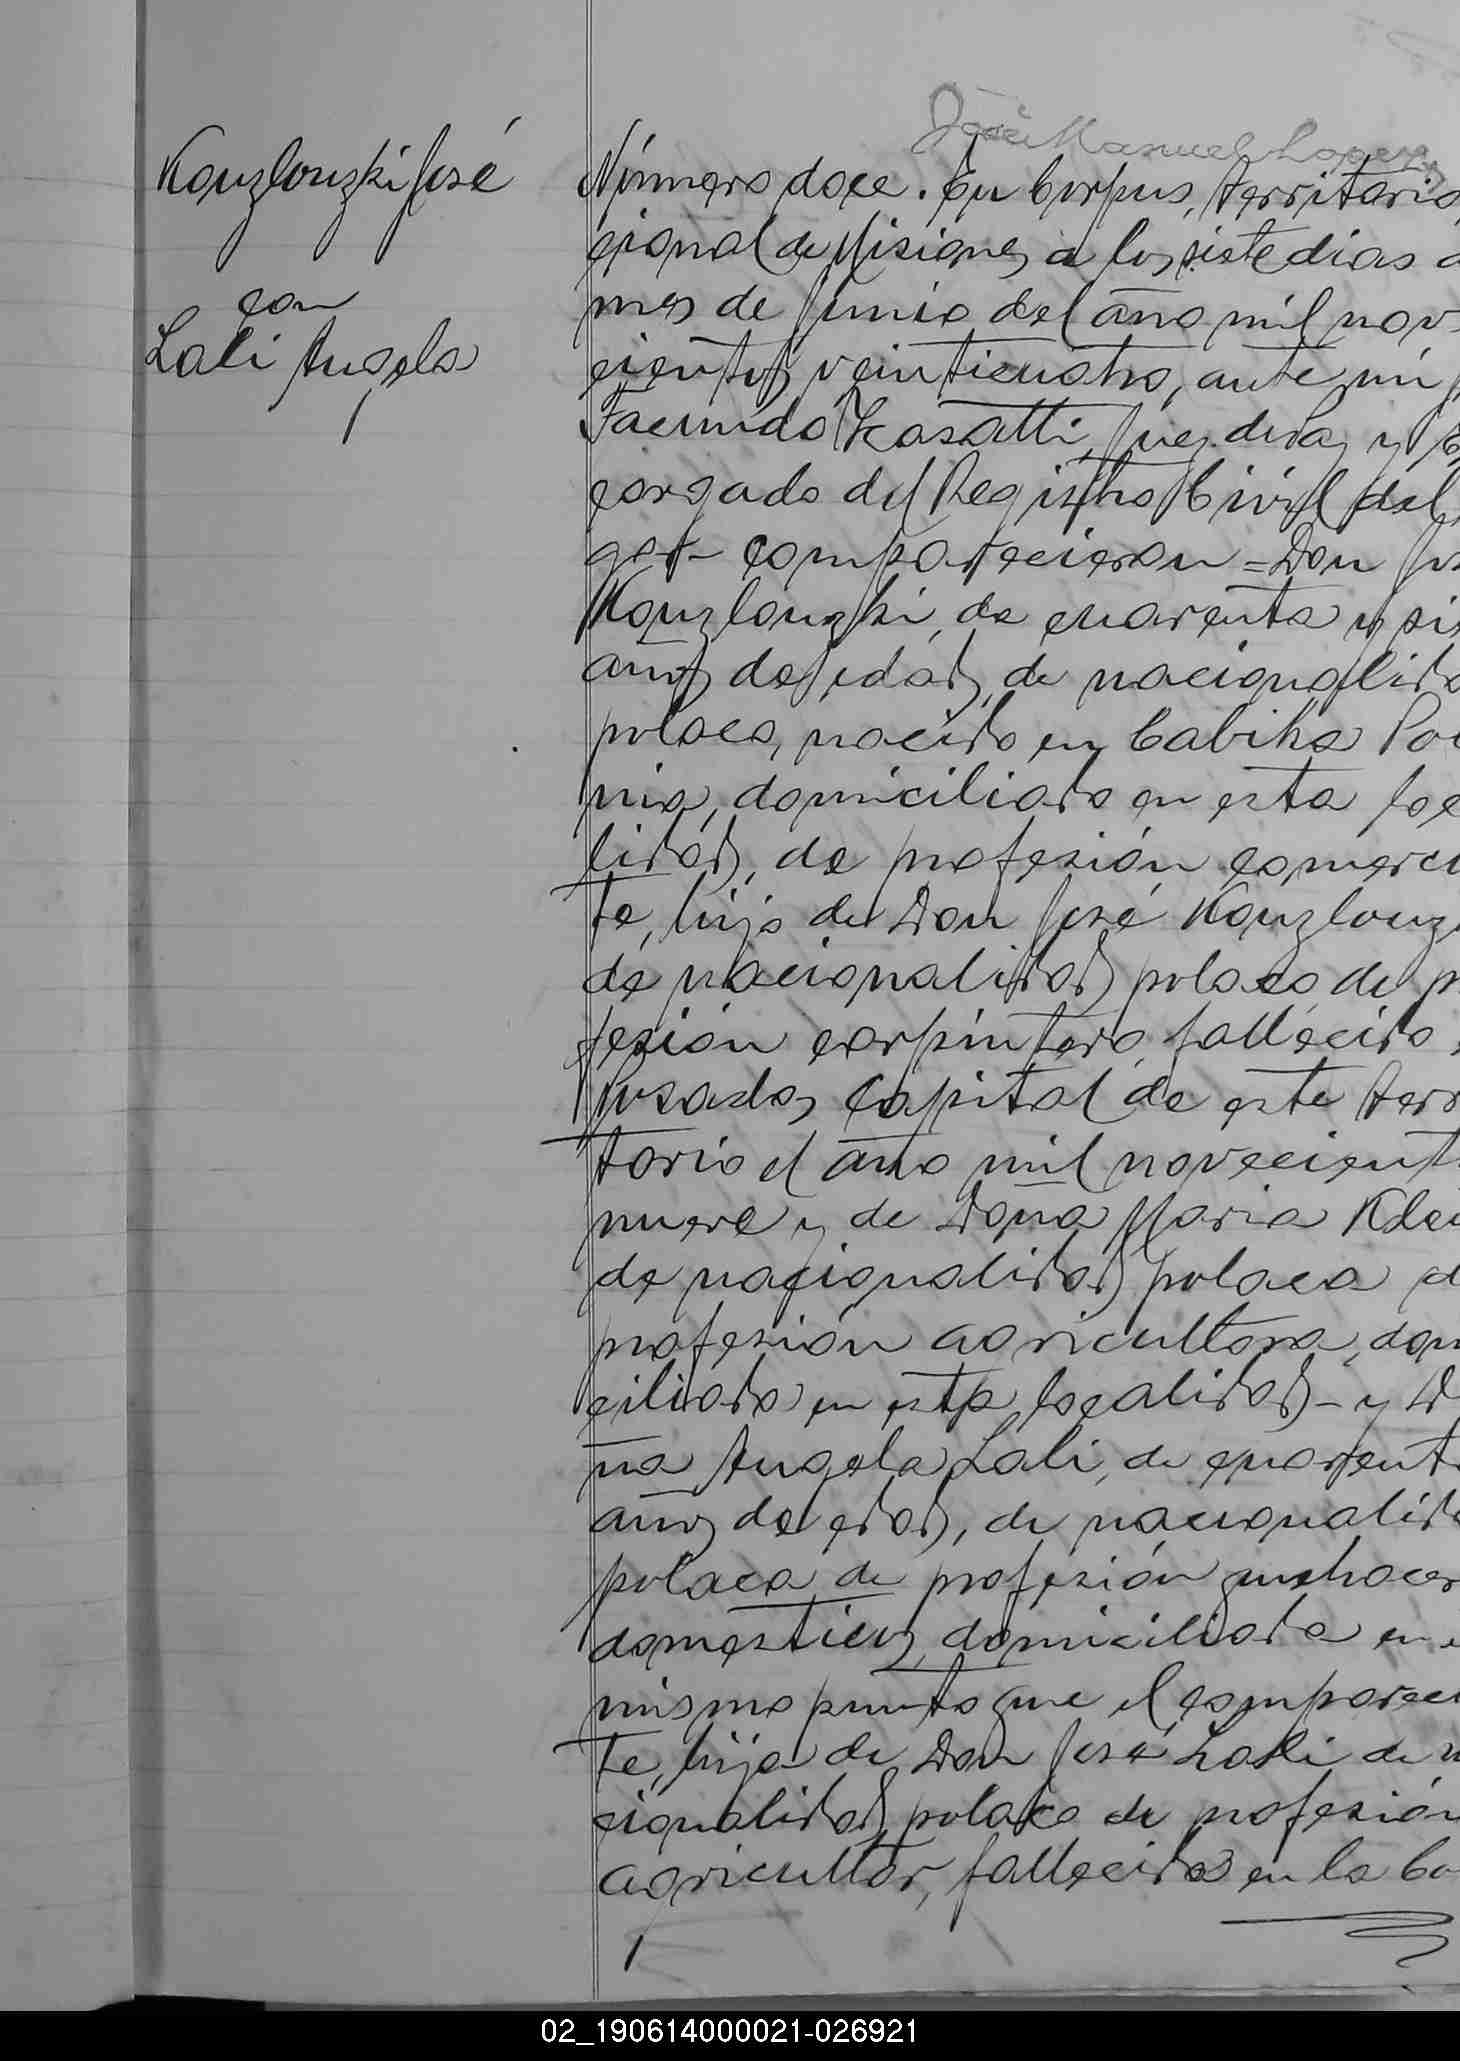 José Manuel Lopez
Kouzlouzki José
con
Lali Angela
Número doce. En Corpus, territorio
cional de Misiones, a los siete dias d
mes de Junio del año mil nov
cientos veinticuatro, ante mi,
Facundo Casatti, Juez de Paz y E
cargado del Registro Civil del
gar comparecieron = Don Jos
Kouzlouzki, de cuarenta y sie
años de edad, de nacionalida
polaca, nacido en Cabiha Polo
nia, domiciliado en esta loc
lidad, de profesión comercia
te, hijo de Don José Kouzlouz
de nacionalidad polaco de p
fesión carpintero, fallecido
Posadas, capital de este terr
torio el año mil novecient
nueve y de Doña Maria
de nacionalidad polaca d
profesión agricultora, dom
ciliada en esta localidad - y D
ña Angela Lali, de cuarent
años de edad, de nacionalida
polaca de profesión quehacer
domesticos, domiciliada en
mismo punto que el comparec
te, hija de Don José Lali de n
cionalidad polaco de profesión
agricultor, fallecido en la
02_190614000021-026921